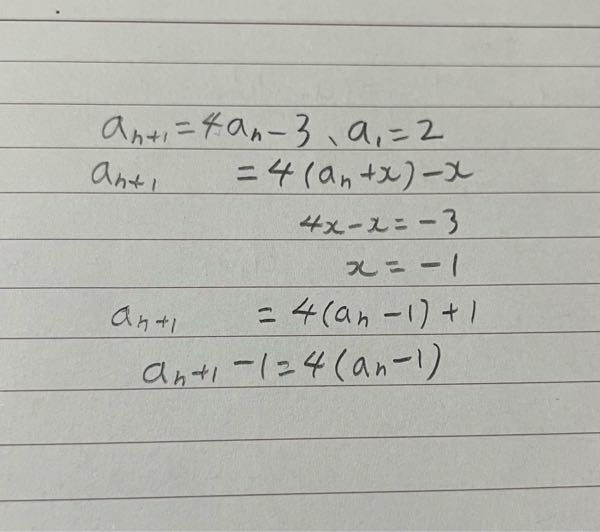 aₙ₊₁=4aₙ-3、a₁=2
aₙ₊₁ =4(aₙ+x)-x
4x-x=-3
x=-1
aₙ₊₁ =4(aₙ-1)+1
aₙ₊₁-1=4(aₙ-1)